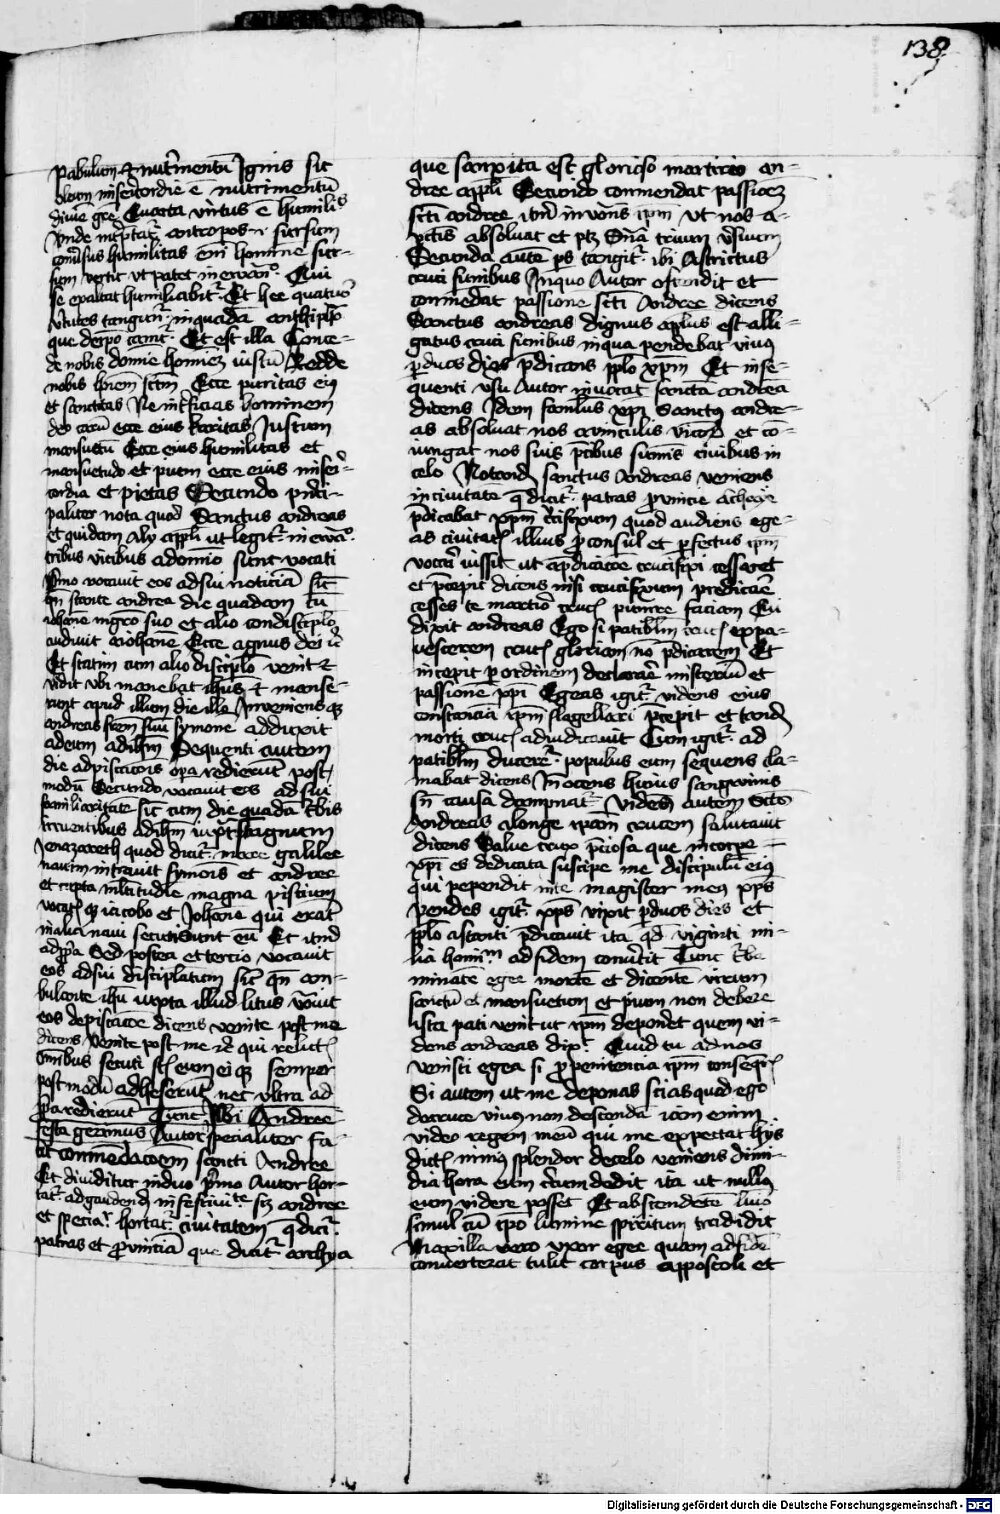 138
pabulum et nutrimentū Ignis sic
oleum misericordie ē nutrimentū
diuine grē Quarta virtus ē humilis
Vnde interptatr antropos i sursum
conuersus humilitas enī hominē sur-
sum vertit vt patet in ewangº Qui
se exaltat humiliabitr Et hee quatuor
vtutes tangūtr in quadā anthiphº
que de ipo canitr Et est illa Conce-
de nobis domīe hominez iustū Redde
nobis hoīem sctm Ecce puritas eius
et sanctitas Ne interficias hominem
deo carū ecce eius karitas Iustum
mansuetū Ecce eius humilitas et
mansuetudo et pium ecce eius miseri-
cordia et pietas Secundo princi-
paliter nota quod Sanctus andreas
et quidam Alij appli ut legitr in ewa.
tribus vicibus a domīo sunt vocati
Pmo vocauit eos ad sui noticiā sic
qn stante andrea die quadam cū
iohāne mgro suo et alio condiscipulo
audiuit a iohāne Ecce agnus dei etc
Et statim cum alio discipulo venit et
vidit vbi manebat ihūs et manse-
runt apud illum die illa Inueniensqz
andreas frēm suū symonē adduxit
ad eum ad ihm Sequenti autem
die ad piscacōis opa redierūt post
modū Secundo vocauit eos ad sui
familiaritatē sic cum die quadā turbis
irruentibus ad ihm iuxta stagnum
Jenazareth quod dicitr mare galilee
nauim intrauit symonis et andree
et capta multitudīe magna piscium
vocatz qz iacobo et Johāne qui erāt
in alia naui secuti sunt eū Et iterū
ad ppria Sed postea et tercio vocauit
eos ad sui discipulatum sic qn am-
bulante ihū iuxta illud litus vocauit
eos de piscacōe dicens venite post me
dicens Venite post me etc qui relictis
omībus secuti st eum eiqz semper
post modū adheserūt nec vltra ad
ppa redierūt Cūnc Vbi Andree
festa gerimus Autor specialiter fa-
cit commēdacōem sancti Andree
Et diuiditur in duo pmo Autor hor-
tatr ad gaudendū in festiuite sci andree
et specialr hortatr ciuitatem q dicitr
patras et prouinciā que dicitr achya
que sanxita est glorioso martirio an-
dree appli Secundo commendat passionez
scti andree iterū inuocās ipm vt nos a
petis absoluat et ptz Snīa trium vsuum
Secunda autē ps tangitr ibi Astrictus
cruci funibus In quo Autor ostendit et
conmēdat passionē scti Andree dicens
Sanctus andreas dignus apptlus est alli-
gatus cruci funibus in qua pendebat viuus
p duos dies pdicans pplo xpm Et in se-
quenti vsu Autor inuocat sanctū andreā
dicens Idem famulus xpi Sanctus andre-
as absoluat nos a vinculis vicioz et cō-
iungat nos suis pcibus summis ciuibus in
celo Notandū sanctus Andreas veniens
in ciuitatē q dicitr patras prouincie Achaye
pdicabat xpm crucifixum quod audiens ege-
as ciuitatis illius proconsul et prefectus ipm
vocari iussit ut a pdicacōe crucifixi cessaret
et pcepit dicens nisi crucifixum predicare
cesses te martirio crucis punire faciam Cui
dixit andreas Ego si patibulm crucis expa-
uescerem crucis gloriam nō pdicarem Et
incepit per ordinem declarare misterium et
passionē xpi Egeas igitr videns eius
constanciā ipm flagellari pcepit et tandē
morti crucis adiudicauit Cum igitr ad
patiblm duceretr populus eum sequens cla-
mabat dicens Innocens huius sangwinis
sn causa dampnatr Videns autem Sctus
Andreas a longe ipam crucem salutauit
dicens Salue crux preciosa que in corpe
xpi es dedicata suscipe me discipulū eius
qui pependit in te magister meus xps
Pendes igitr xps vixit p duos dies et
pplo astanti pdicauit ita qd viginti mi-
lia hominm ad fidem conuertit Tunc turba
minātē egee mortē et dicente virum
sanctū et mansuetum et pium non debere
ista pati venit ut ipm deponeret quem vi-
dens andreas dixt Quid tu ad nos
venisti egea si pro penitencia ipm consequeris
Si autem ut me deponas scias quod ego
de cruce viuus non descendā iam enim
video regem meū qui me expectat hijs
dictis nimius splendor de celo veniens dimi-
dia hora eum circumdedit ita ut nullus
eum videre posset Et abscondētē lumē
simul cū ipo lumine spiritum tradidit
Maxilla vero vxor egee quam ad fidē
conuerterat tulit corpus appostoli et
Digitalisierung gefördert durch die Deutsche Forschungsgemeinschaft - DFG